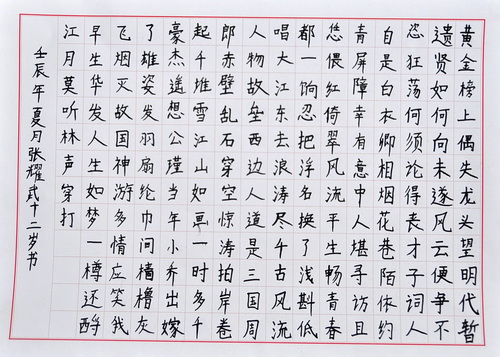 黄金榜上偶失龙头望明代暂
遗贤如何向未遂风云便争不
恣狂荡何须论得丧才子词人
自是白衣卿相烟花巷陌依约
青屏障幸有意中人堪寻访且
恁偎红倚翠风流平生畅青春
都一饷忍把浮名换了浅斟低
唱大江东去浪涛尽千古风流
人物故垒西边人道是三国周
郎赤壁乱石穿空惊涛拍岸卷
起千堆雪江山如画一时多千
豪杰遥想公瑾当年小乔出嫁
了雄姿发羽扇纶巾间樯橹灰
飞烟灭故国神游多情应笑我
早生华发人生如梦一樽还酹
江月莫听林声穿打
壬辰年夏月张耀武十二岁书